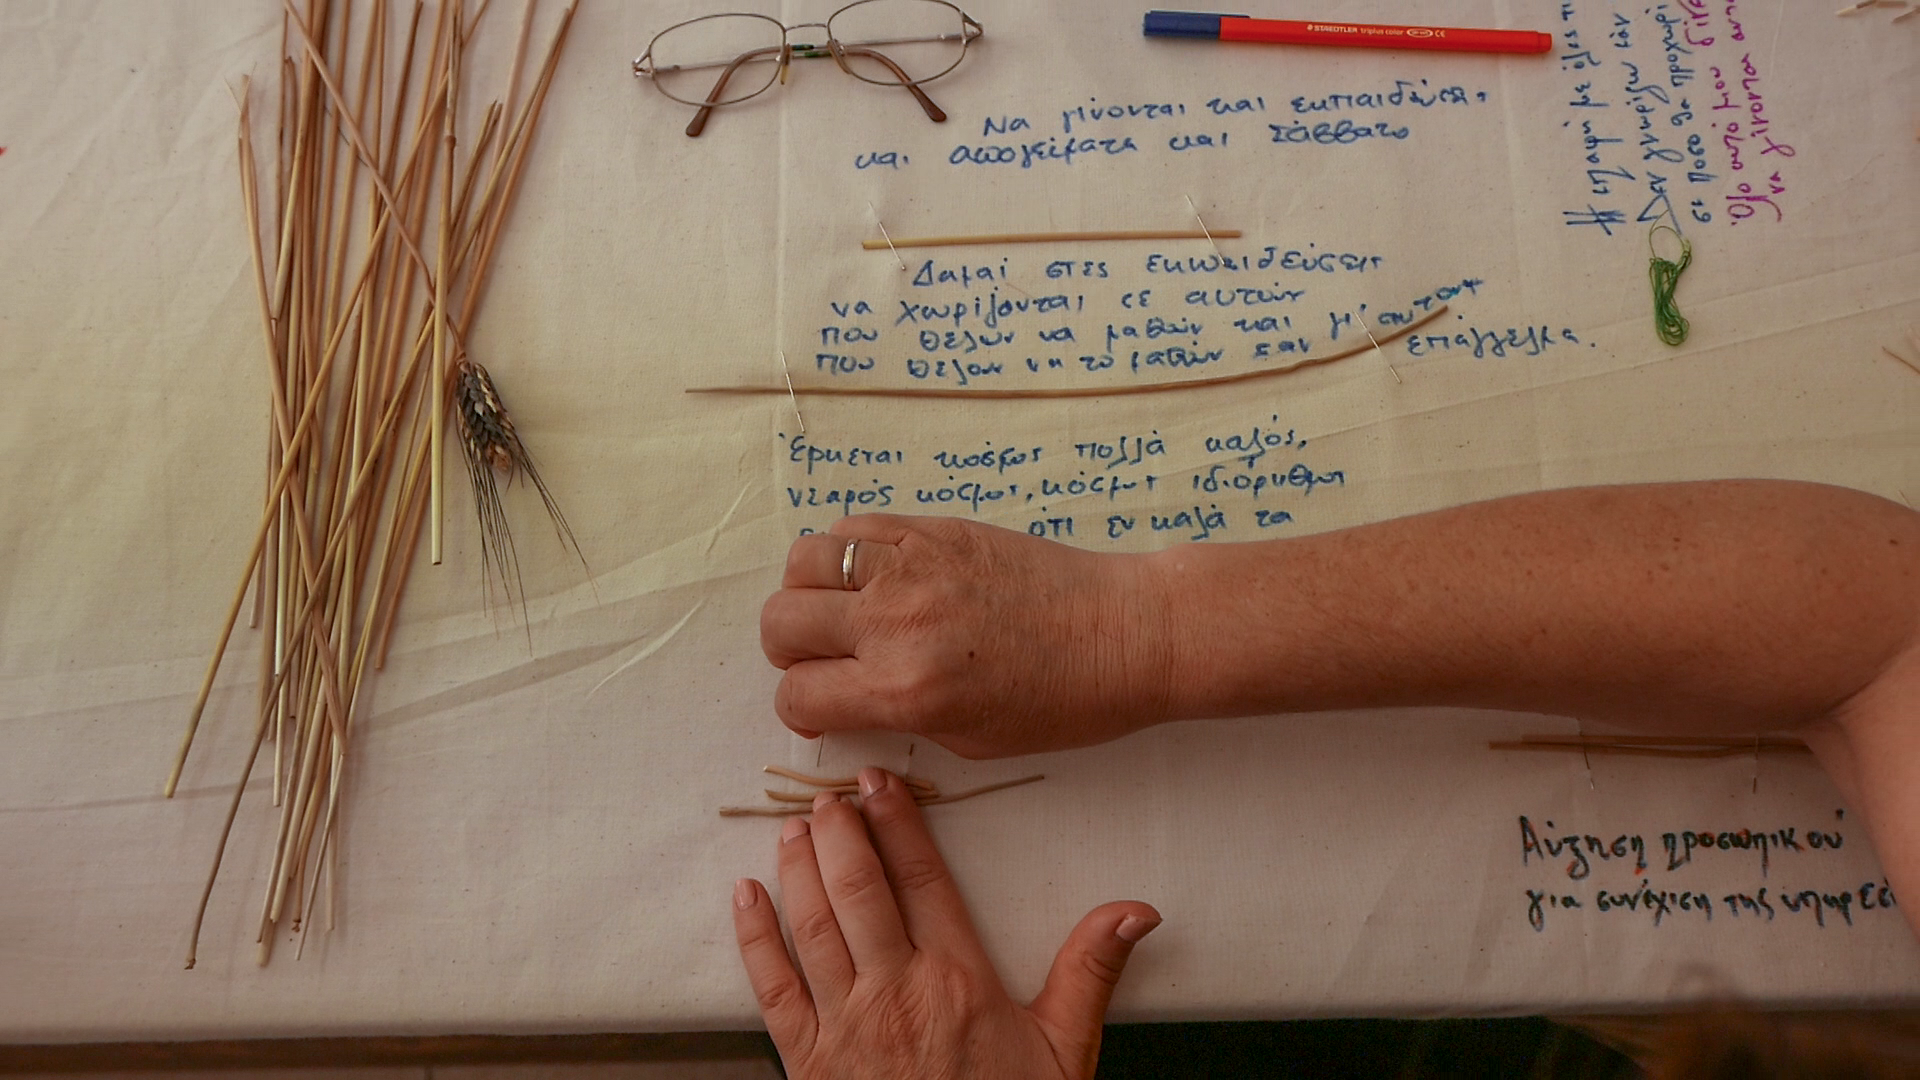 Να γίνονται και εκπαιδεύσεις
και απογεύματα και Σάββατο
Δαμαί στες εκπαιδεύσεις
να χωρίζονται σε αυτούν
που θέλουν να μαθούν και μ' αυτούς
που θέλουν να το μαθούν σαν επάγγελμα.
Έρκεται κόσμος πολλά καλός,
νεαρός κόσμος, κόσμος ιδιόρυθμος
ότι εν καλά τα
Αύξηση προσωπικού
για συνέχιση της υπηρεσί
STAEDTLER triplus color CE
# επαφή με όλες τι
Δεν γνωρίζω εάν
σε ποσο θα προχωρί
Όλο αυτό μου δίνε
να γίνονται